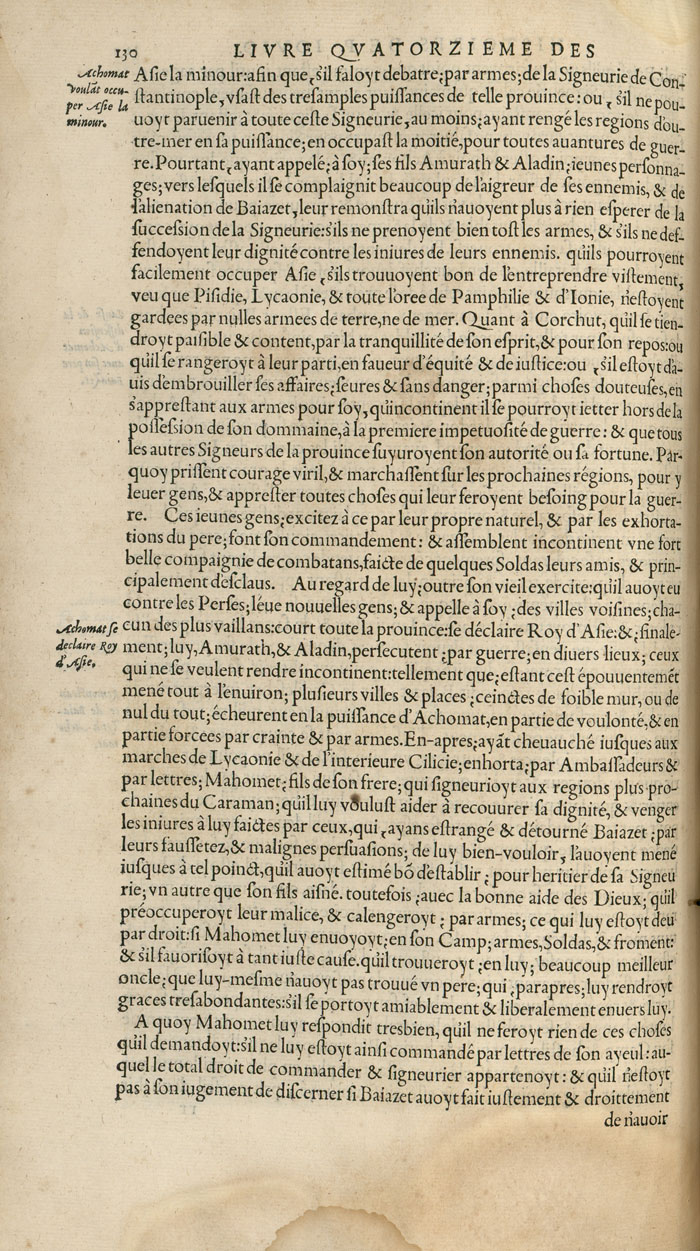 130 LIVRE QVATORZIEME DES
Achomat
voulāt occu-
per Asie la
minour.
Aſie la minour:afin que,s'il faloyt debatre;par armes;de la Signeurie de Con-
ſtantinople,vſaſt des treſamples puiſſances de telle prouince:ou,s'il ne pou-
uoyt paruenir à toute ceſte Signeurie,au moins;ayant rengé les regions d'ou-
tre-mer en ſa puiſſance;en occupaſt la moitié,pour toutes auantures de guer-
re.Pourtant,ayant appelé;à ſoy;ſes fils Amurath & Aladin;ieunes perſonna-
ges;vers leſquels il ſe complaignit beaucoup de l'aigreur de ſes ennemis, & de
l'alienation de Baiazet,leur remonſtra qu'ils n'auoyent plus à rien eſperer de la
ſucceſſion de la Signeurie:s'ils ne prenoyent bien toſt les armes, & s'ils ne def-
fendoyent leur dignité contre les iniures de leurs ennemis. qu'ils pourroyent
facilement occuper Aſie,s'ils trouuoyent bon de l'entreprendre viſtement,
veu que Piſidie, Lycaonie, & toute l'oree de Pamphilie & d'Ionie, n'eſtoyent
gardees par nulles armees de terre,ne de mer. Quant à Corchut, qu'il ſe tien-
droyt paiſible & content,par la tranquillité de ſon eſprit,& pour ſon repos:ou
qu'il ſe rangeroyt à leur parti,en faueur d'équité & de iuſtice:ou,s'il eſtoyt d'a-
uis d'embrouiller ſes affaires;ſeures & ſans danger;parmi choſes douteuſes,en
s'appreſtant aux armes pour ſoy,qu'incontinent il ſe pourroyt ietter hors de la
poſſeſsion de ſon dommaine,à la premiere impetuoſité de guerre: & que tous
les autres Signeurs de la prouince ſuyuroyent ſon autorité ou ſa fortune. Par-
quoy priſſent courage viril,& marchaſſent ſur les prochaines régions, pour y
leuer gens,& appreſter toutes choſes qui leur feroyent beſoing pour la guer-
re. Ces ieunes gens;excitez à ce par leur propre naturel, & par les exhorta-
tions du pere;font ſon commandement: & aſſemblent incontinent vne fort
belle compaignie de combatans,faicte de quelques Soldas leurs amis, & prin-
cipalement d'eſclaus. Au regard de luy;outre ſon vieil exercite:qu'il auoyt eu
contre les Perſes;léue nouuelles gens;& appelle à ſoy;des villes voiſines;cha-
Achomat ſe
declaire Roy
d'Aſie.
cun des plus vaillans:court toute la prouince:ſe déclaire Roy d'Aſie:&;finale-
ment;luy,Amurath,& Aladin,perſecutent;par guerre;en diuers lieux; ceux
qui ne ſe veulent rendre incontinent:tellement que;eſtant ceſt épouuentemēt
mené tout à l'enuiron; pluſieurs villes & places;ceinctes de foible mur, ou de
nul du tout;écheurent en la puiſſance d'Achomat,en partie de voulonté,& en
partie forcees par crainte & par armes.En-apres;ayāt cheuauché iuſques aux
marches de Lycaonie & de l'interieure Cilicie;enhorta;par Ambaſſadeurs &
par lettres; Mahomet;fils de ſon frere;qui ſigneurioyt aux regions plus pro-
chaines du Caraman;qu'il luy vouluſt aider à recouurer ſa dignité, & venger
les iniures à luy faictes par ceux,qui,ayans eſtrangé & détourné Baiazet;par
leurs fauſſetez,& malignes perſuaſions; de luy bien-vouloir, l'auoyent mené
iuſques à tel poinct,qu'il auoyt eſtimé bō d'eſtablir;pour heritier de ſa Signeu
rie;vn autre que ſon fils aiſné. toutefois;auec la bonne aide des Dieux; qu'il
préoccuperoyt leur malice, & calengeroyt;par armes; ce qui luy eſtoyt deu
par droit:ſi Mahomet luy enuoyoyt;en ſon Camp;armes,Soldas,& froment:
& s'il fauoriſoyt à tant iuſte cauſe.qu'il trouueroyt;en luy; beaucoup meilleur
oncle;que luy-meſme n'auoyt pas trouué vn pére; qui,parapres;luy rendroyt
graces treſabondantes:s'il ſe portoyt amiablement & liberalement enuers luy.
A quoy Mahomet luy reſpondit tresbien, qu'il ne feroyt rien de ces choſes
qu'il demandoyt:s'il ne luy eſtoyt ainſi commandé par lettres de ſon ayeul:au-
quel le total droit de commander & ſigneurier appartenoyt: & qu'il n'eſtoyt
pas à ſon iugement de diſcerner ſi Baiazet auoyt fait iuſtement & droittement
de n'auoir